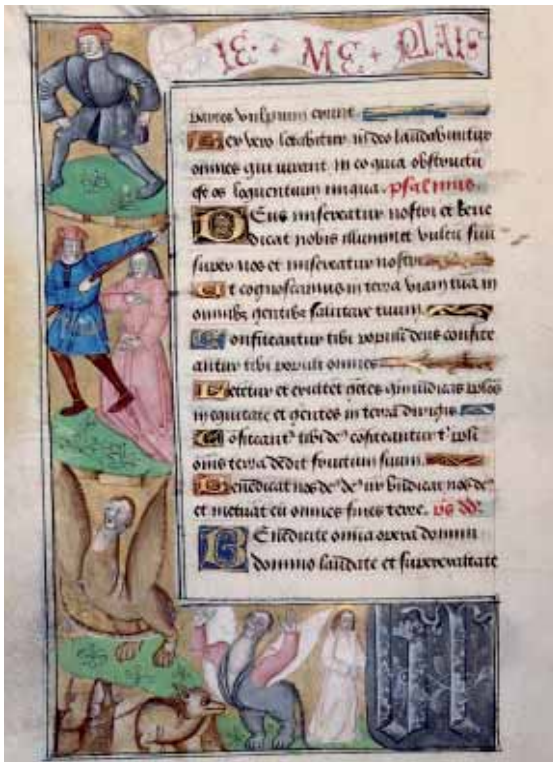 IE · ME · PLAIS
partes vulpium erunt
Rex vero letabitur in deo laudabuntur
omnes qui iurant in eo quia obstructū
est os loquentium iniqua psalmus
DEus misereatur nostri et bene
dicat nobis illuminet vultū suū
super nos et misereatur nostri
Ut cognoscamus in terra viam tuā in
omnibꝫ gentibꝫ salutare tuum
Confiteantur tibi populi deus confite
antur tibi populi omnes
Letetur et exultet gētes qm̄ iudicas
in equitate et gentes in terra dirigis
Cōfiteant tibi de cōfiteantur t
omīs terra dedit fructum suum
Benedicat nos de de nr bn̄dicat nos de
et metuāt eū omnes fines terre. ps dd
BEnedicite omīa opera domini
domino laudate et superexaltate